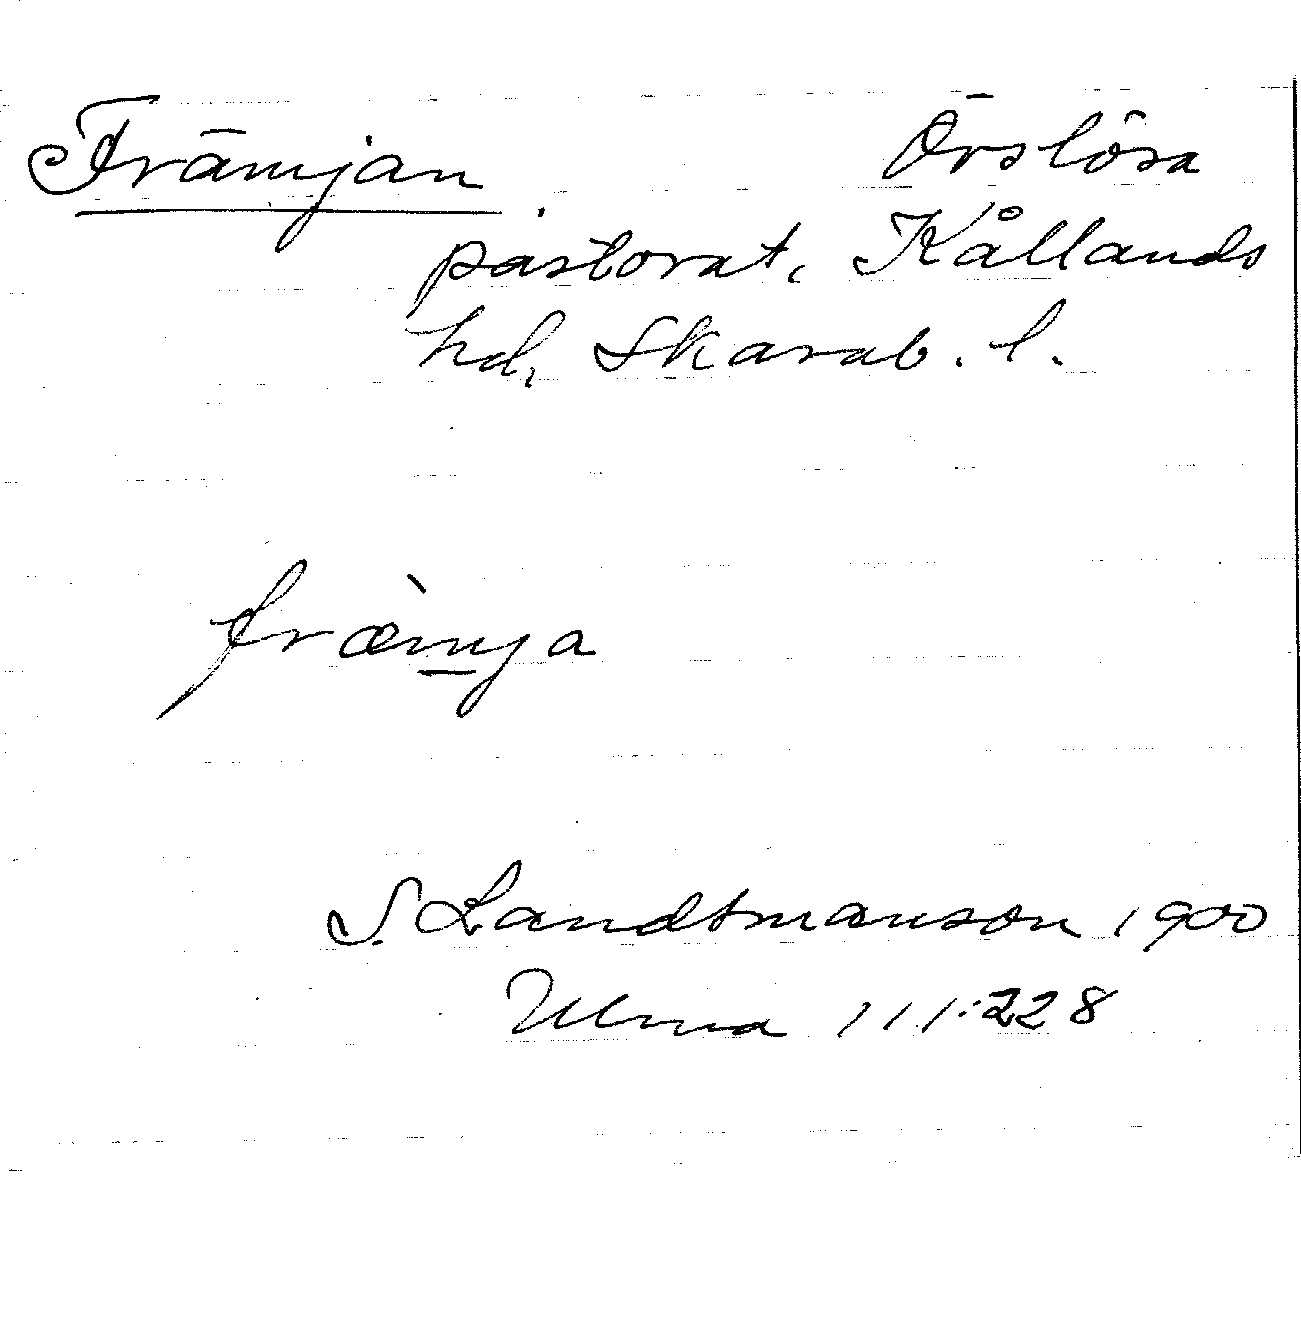 Främjan Örslösa
pastorat, Kållands
hd, Skarab. l.
fræ̀mja
S. Landtmanson 1900
Ulma 111:228